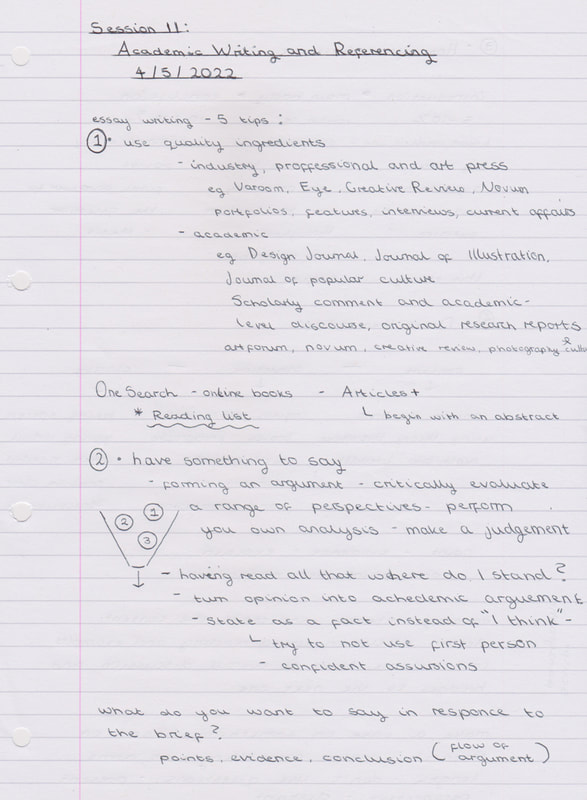 Session 11:
Academic Writing and Referencing
4/5/2022
essay writing - 5 tips :
① • use quality ingredients
- industry, proffessional and art press
eg Varoom, Eye, Creative Review, Novum
portfolios, features, interviews, current affairs
- academic
eg Design Journal, Journal of Illustration,
Journal of popular culture
Scholarly comment and academic-
level discourse, original research reports
artforum, novum, creative review, photography & culture
OneSearch - online books - Articles+
* Reading list
└ begin with an abstract
② • have something to say
- forming an argument - critically evaluate
a range of perspectives - perform
you own analysis - make a judgement
① ② ③
- having read all that where do I stand?
- turn opinion into achedemic arguement
- state as a fact instead of "I think" -
└ try to not use first person
- confident assursions
what do you want to say in responce to
the brief?
points, evidence, conclusion (flow of argument)